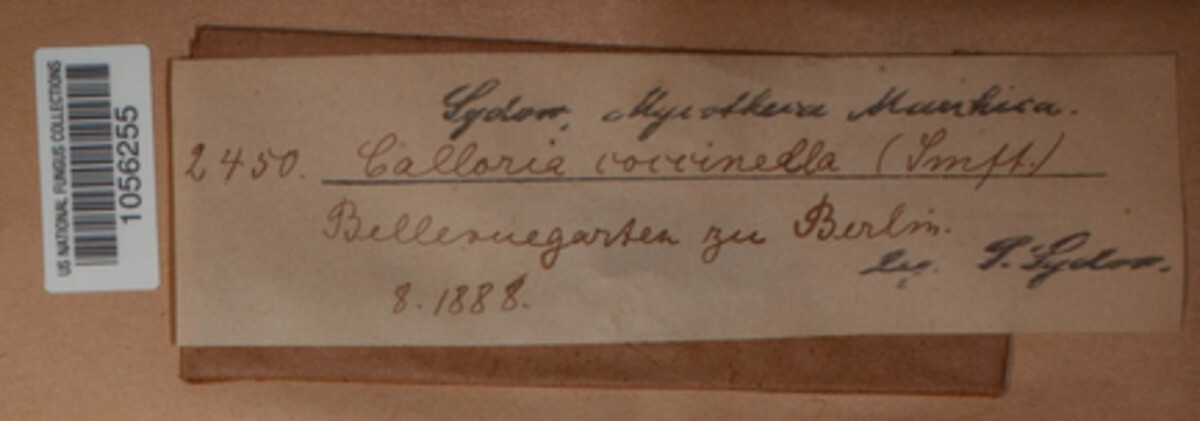 US NATIONAL FUNGUS COLLECTIONS
1056255
Sydow, Mycotheca Marchica.
2450. Calloria coccinella (Smft.)
Bellevuegarten zu Berlin.
Leg. P. Sydow.
8. 1888.